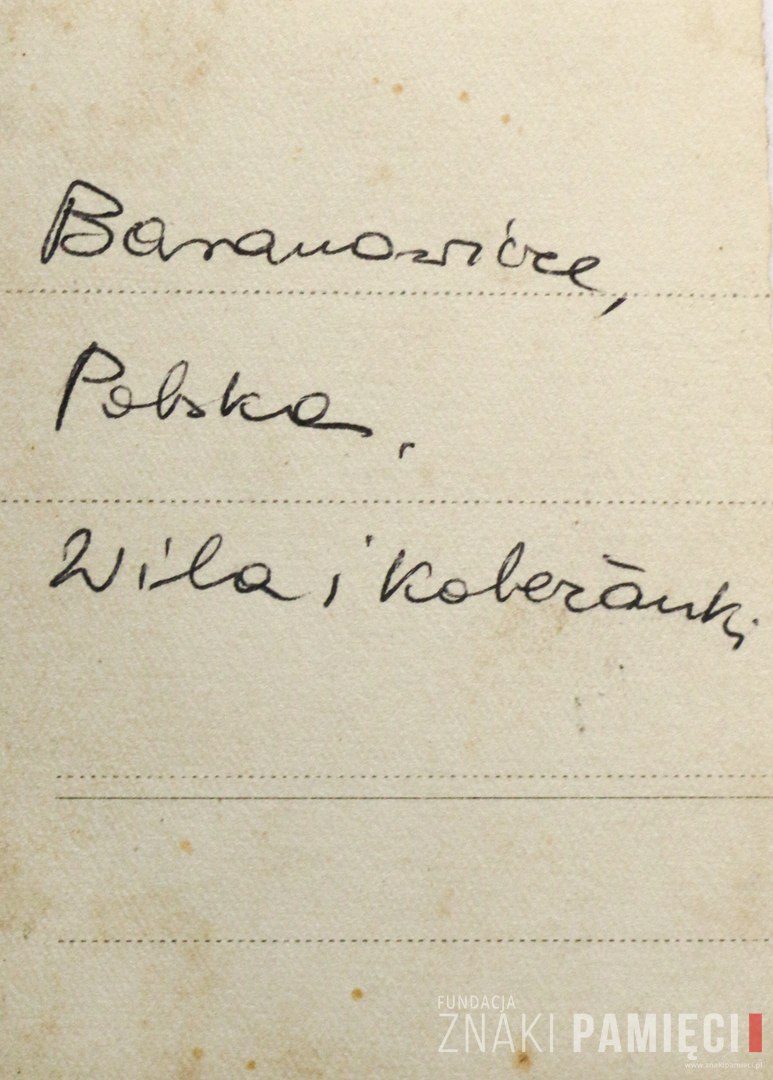 Baranowicze,
Polska,
Wila i koleżanki
FUNDACJA
ZNAKI PAMIĘCI
www.znakipamieci.pl